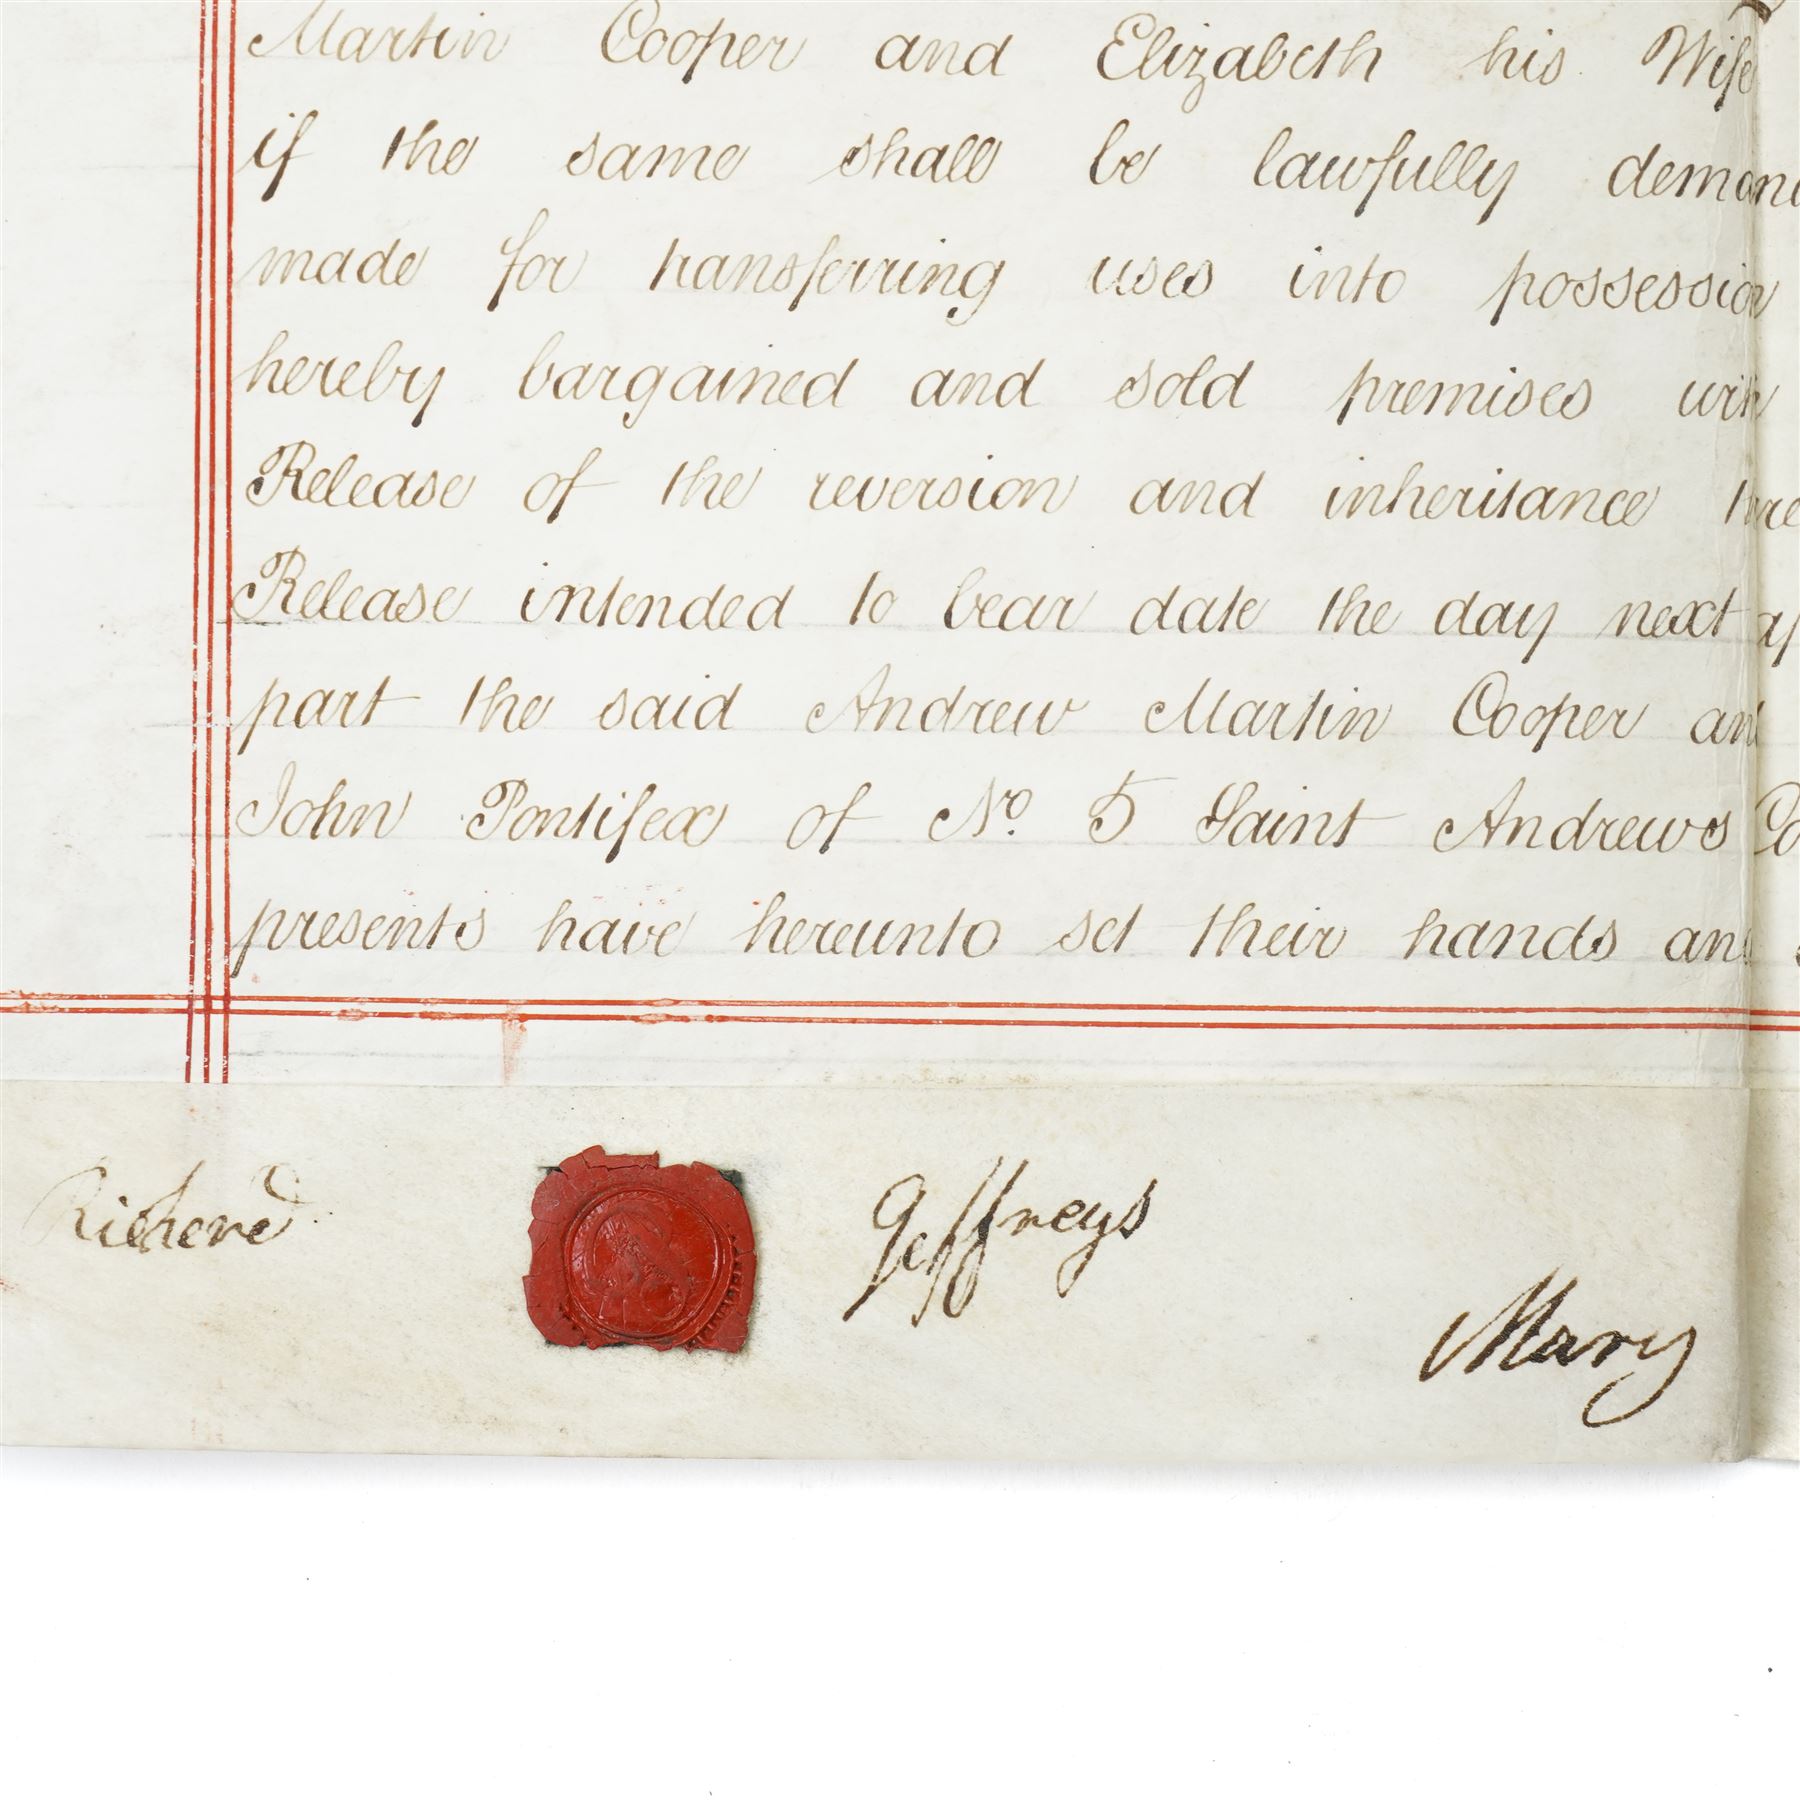 Martin Cooper and Elizabeth his Wife
if the same shall be lawfully
made for transferring uses into possession
hereby bargained and sold premises with
Release of the reversion and inheritance
Release intended to bear date the day next
part the said Andrew Martin Cooper and
John Pontifex of No. 5 Saint Andrews
presents have hereunto set their hands and
Richard Jeffreys
Mary